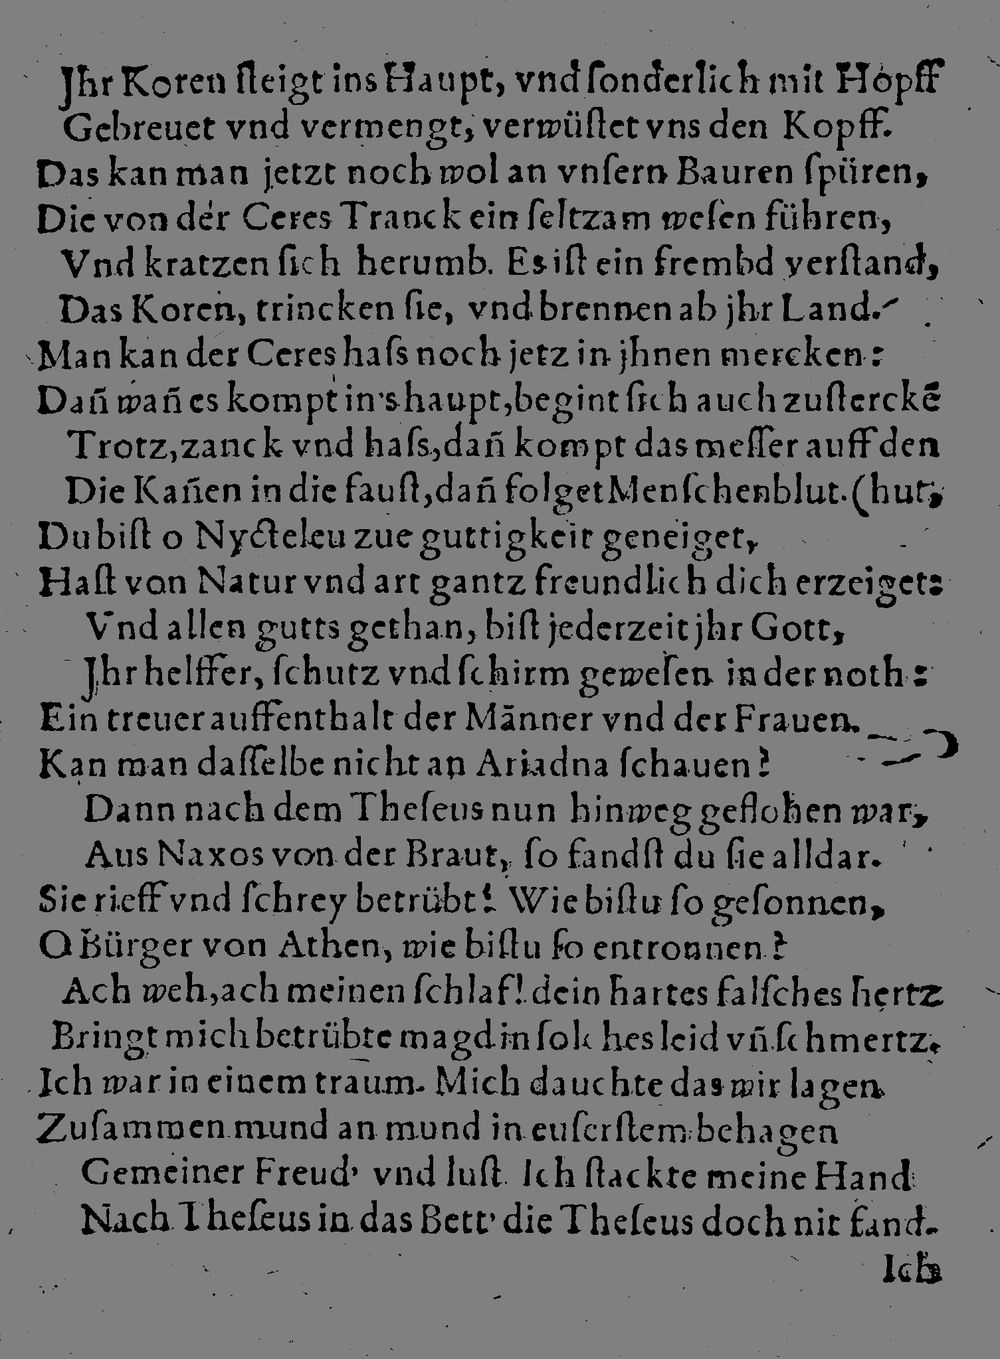 Jhr Koren ſteigt ins Haupt, vnd ſonderlich mit Hopff
Gebreuet vnd vermengt, verwüſtet vns den Kopff.
Das kan man jetzt noch wol an vnſern Bauren ſpüren,
Die von der Ceres Tranck ein ſeltzam weſen führen,
Vnd kratzen ſich herumb. Es iſt ein frembd verſtand,
Das Koren, trincken ſie, vnd brennen ab jhr Land.
Man kan der Ceres haſs noch jetz in jhnen mercken:
Dañ wañ es kompt in's haupt, begint ſich auch zuſterckẽ
Trotz, zanck vnd haſs, dañ kompt das meſſer auff den
Die Kañen in die fauſt, dañ folget Menſchenblut. (hut,
Du biſt o Nycteleu zue guttigkeit geneiget,
Haſt von Natur vnd art gantz freundlich dich erzeiget:
Vnd allen gutts gethan, biſt jederzeit jhr Gott,
Jhr helffer, ſchutz vnd ſchirm geweſen in der noth:
Ein treuer auffenthalt der Männer vnd der Frauen.
Kan man daſſelbe nicht an Ariadna ſchauen?
Dann nach dem Theſeus nun hinweg geflohen war,
Aus Naxos von der Braut, ſo fandſt du ſie alldar.
Sie rieff vnd ſchrey betrübt! Wie biſtu ſo geſonnen,
O Bürger von Athen, wie biſtu ſo entronnen?
Ach weh, ach meinen ſchlaf! dein hartes falſches hertz
Bringt mich betrübte magd in ſolches leid vñ ſchmertz.
Ich war in einem traum. Mich dauchte das wir lagen
Zuſammen mund an mund in euſerſtem behagen
Gemeiner Freud' vnd luſt. Ich ſtackte meine Hand
Nach Theſeus in das Bett' die Theſeus doch nit fand.
Ich